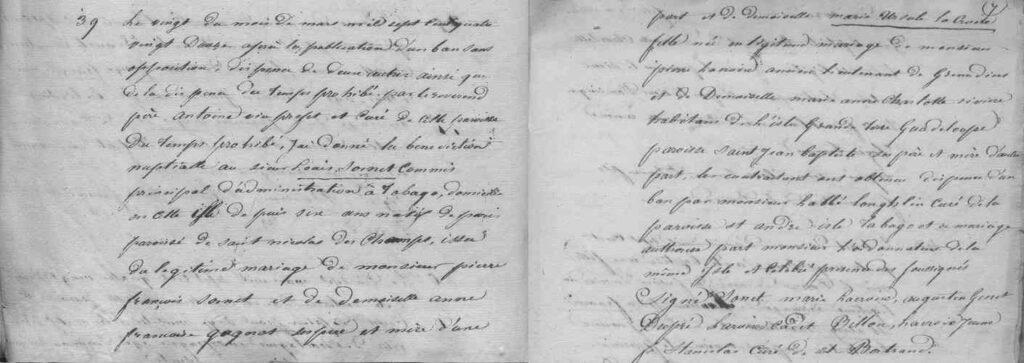 39 Le vingt du mois de mars mil sept cent quatre
vingt Douze après la publication d'un ban sans
opposition, dispense de deux autres ainsi que
de la dispense du temps prohibé par le reverend
père Antoine vice prefet et curé de cette paroisse
Du temps prohibé, J'ai donné la bénédiction
nuptialle au sieur Louis Sornet Commis
principal d'administration à Tabago, domicilié
en cette isle de puis six ans natif de paris
paroisse de saint nicolas des Champs, issu
du legitime mariage de monsieur pierre
françois Sornet et de demoiselle anne
francoise ses père et mère d'une
(7)
part et de demoiselle marie Ursule la Croix
fille née en légitime mariage de monsieur
pierre lacroix ancien Lieutenant de Grenadiers
et de Demoiselle marie anne Charlotte
habitans de l'isle Grande Terre Guadeloupe
paroisse Saint Jean Baptiste ses père et mère d'autre
part, les contractant ont obtenu dispense d'un
ban par monsieur l'abbé curé de la
paroisse st andré isle tabago et ce mariage
authorisé part monsieur l'ordonnateur de la
même Isle et célébré presence des soussignés
Signé Sonet, marie lacroix, augustin Genet
Dupré Lacroix cadet Billon, lacroix Jeune
f. Stanislas Curé de et Bertrand